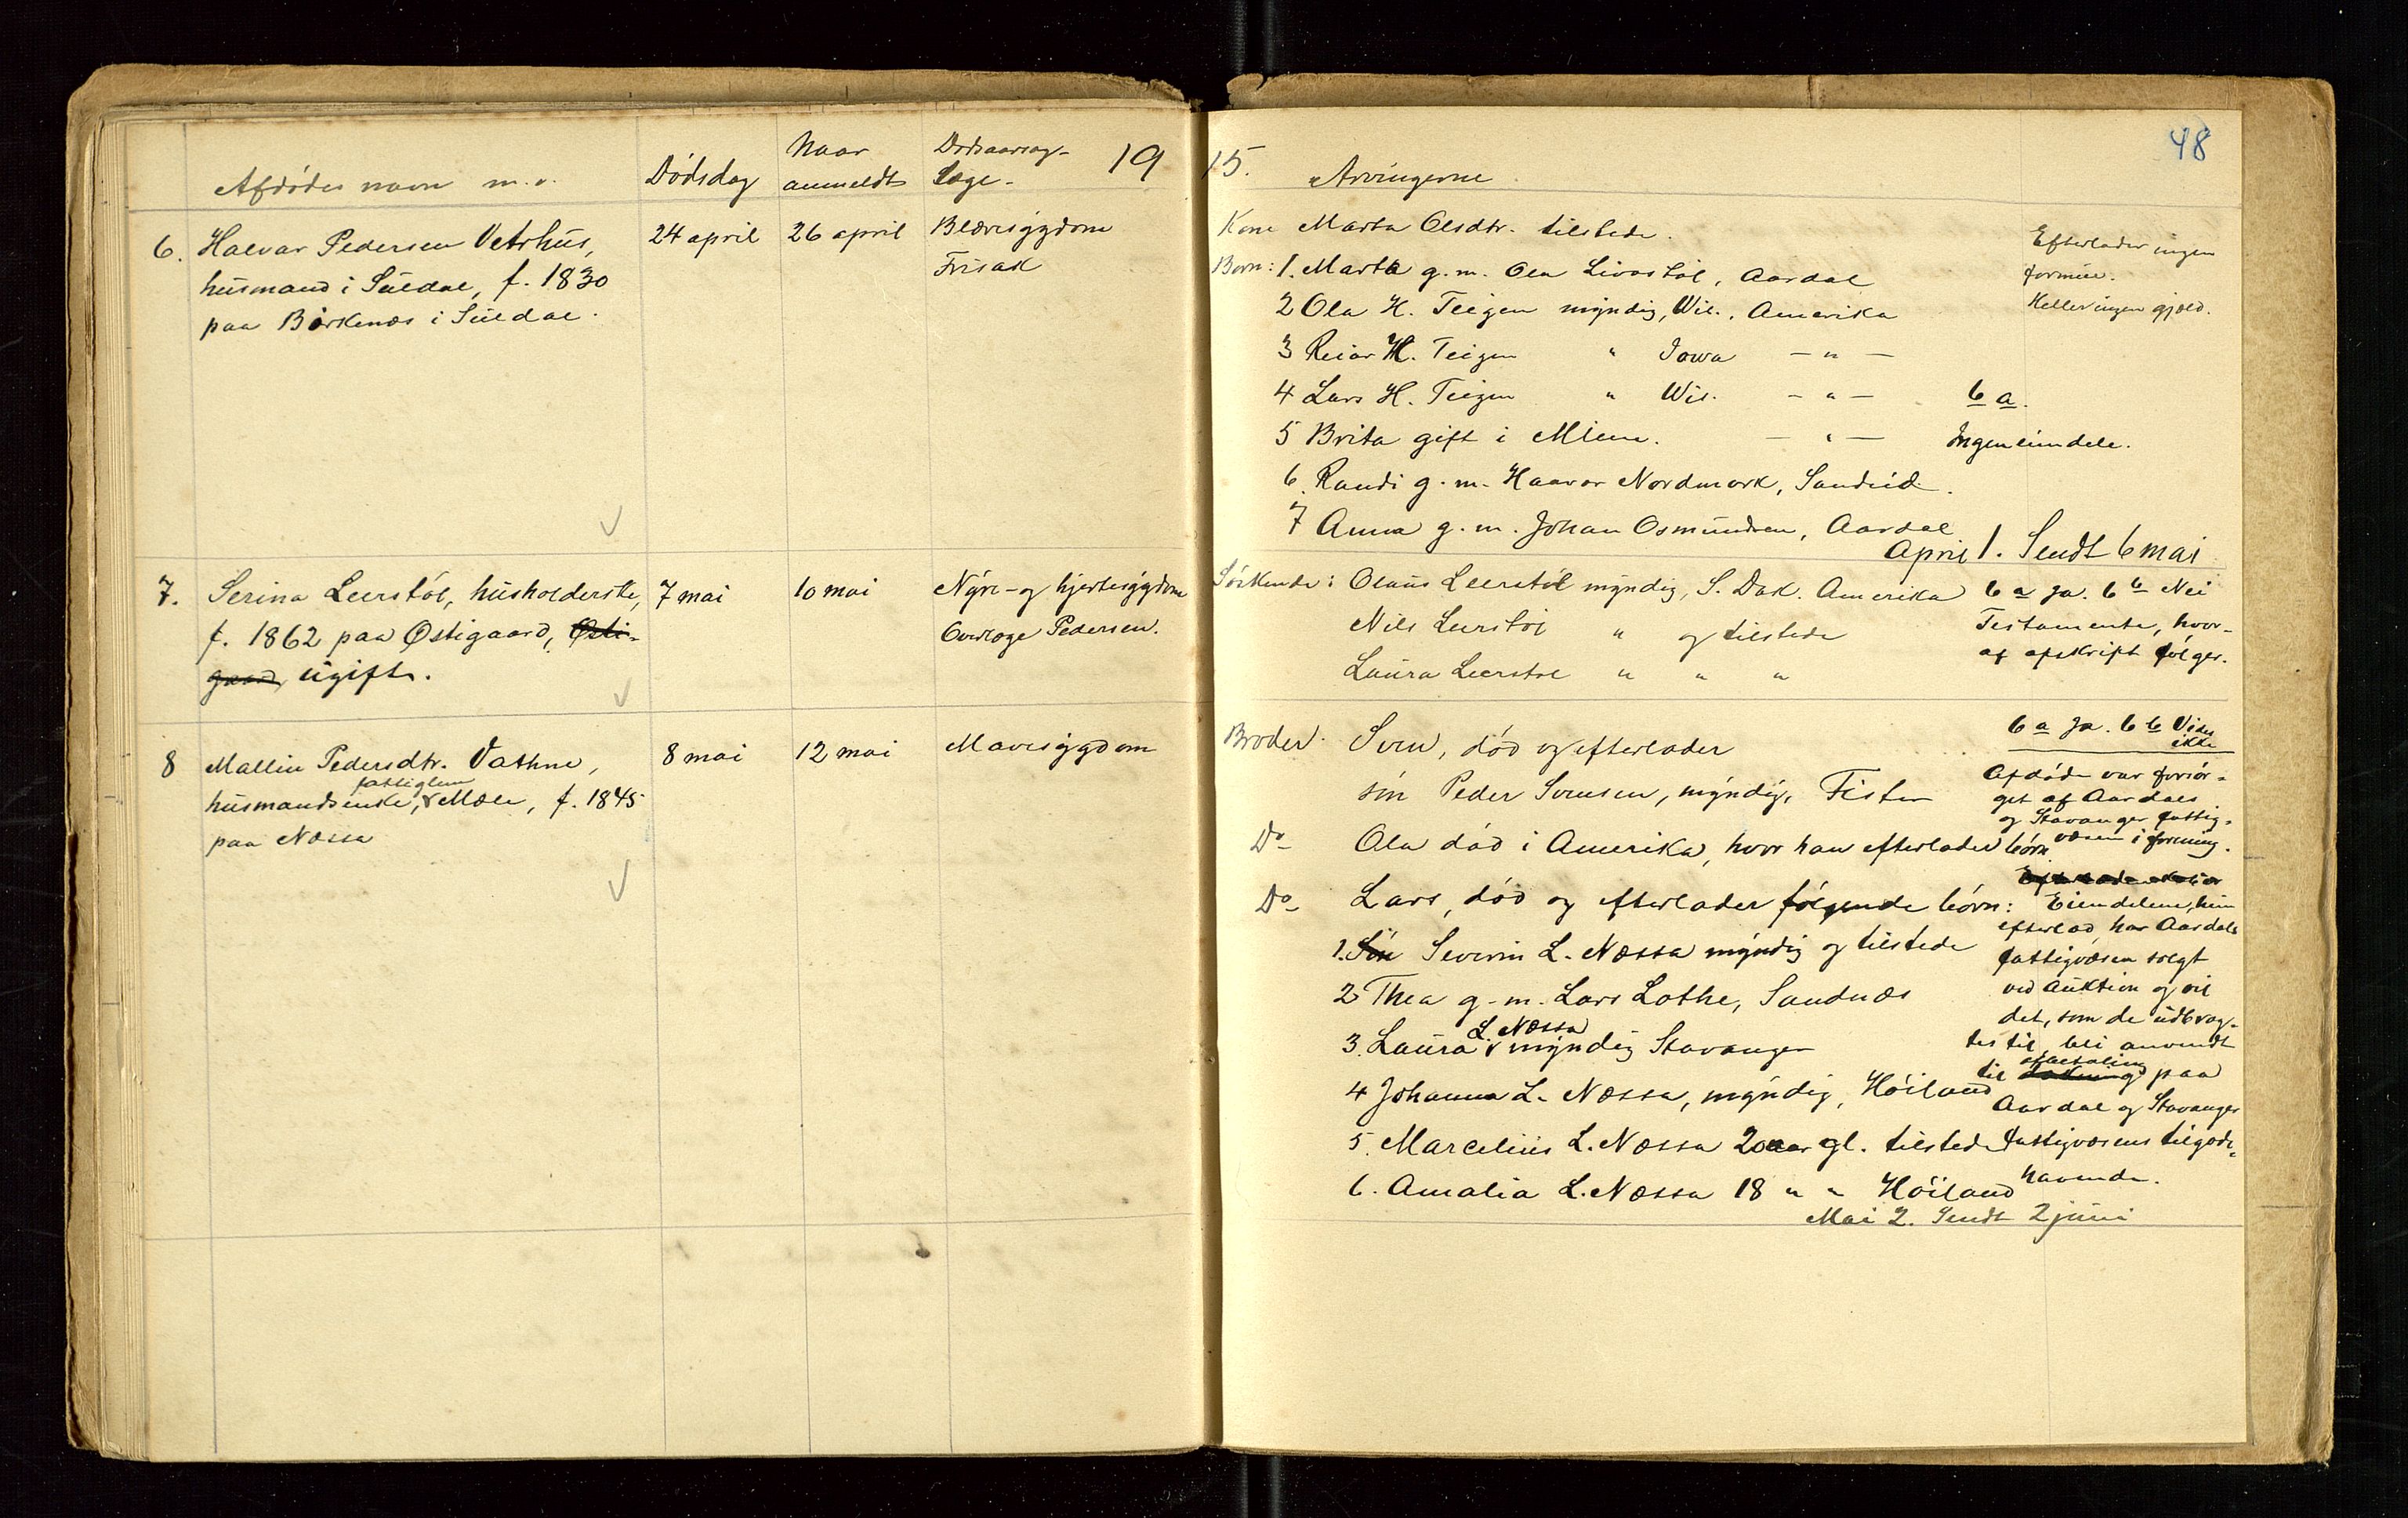 Afdødes navn m.v.
Dødsdag
Naar
anmeldt
Dødsaarsag-
Læge-
19
6. Halvar Pedersen Vetrhus,
husmand i Suldal, f. 1830
paa Børkenæs i Suldal.
24 april
26 april
Blæresygdom
Frisak
7. Serina Leerstøl, husholderske,
f. 1862 paa Østigaard, Østi-
gaard, ugift.
7 mai
10 mai
Nyre- og hjertesygdom
Overlæge Pedersen.
8 Mallin Pedersdtr. Vathne,
fattiglem
husmandsenke, Mæle, f. 1845
paa Nessa
8 mai
12 mai
Mavesygdom
48
15. Arvingerne
Kone Marta Olsdtr. tilstede.
Børn: 1. Marta g.m. Ola Livastøl, Aardal
2 Ola H. Teigen myndig, Wis., Amerika
3 Reiar H. Teigen " Iowa — " —
4 Lars H. Teigen " Wis. — " —
5 Brita gift i Minn. — " —
6. Randi g.m. Haavar Nordmork, Sandeid.
7 Anna g.m. Johan Osmundsen, Aardal
Efterlader ingen
formue.
Heller ingen gjæld.
6 a.
Ingen eiendele.
April 1. Sendt 6 mai
Søskende: Olaus Leerstøl myndig, S. Dak. Amerika
Nils Leerstøl " og tilstede
Laura Leerstøl " " "
6 a Ja. 6 b Nei
Testamente, hvor-
af afskrift følger.
Broder. Sven, død og efterlader
søn Peder Svensen, myndig, Fister
Do- Ola død i Amerika, hvor han efterlader børn.
Do- Lars, død og efterlader følgende børn:
1. Søn Severin L. Nessa myndig og tilstede
2 Thea g.m. Lars Lothe, Sandnes
L. Nessa
3. Laura myndig Stavanger
4 Johanna L. Nessa, myndig, Høiland
5. Marcelius L. Nessa 20 aar gl. tilstede
6. Amalia L. Nessa 18 " " Høiland
6 a Ja. 6 b Vides
ikke
Afdøde var forsør-
get af Aardals
og Stavanger fattig-
væsen i forening.
Eiendelene, hun
efterlod, har Aardals
fattigvæsen solgt
ved auktion og vil
det, som de udbrag-
tes til, bli anvendt
afbetaling
til paa
Aardal og Stavanger
fattigvæsens tilgode-
havende.
Mai 2. Sendt 2 juni